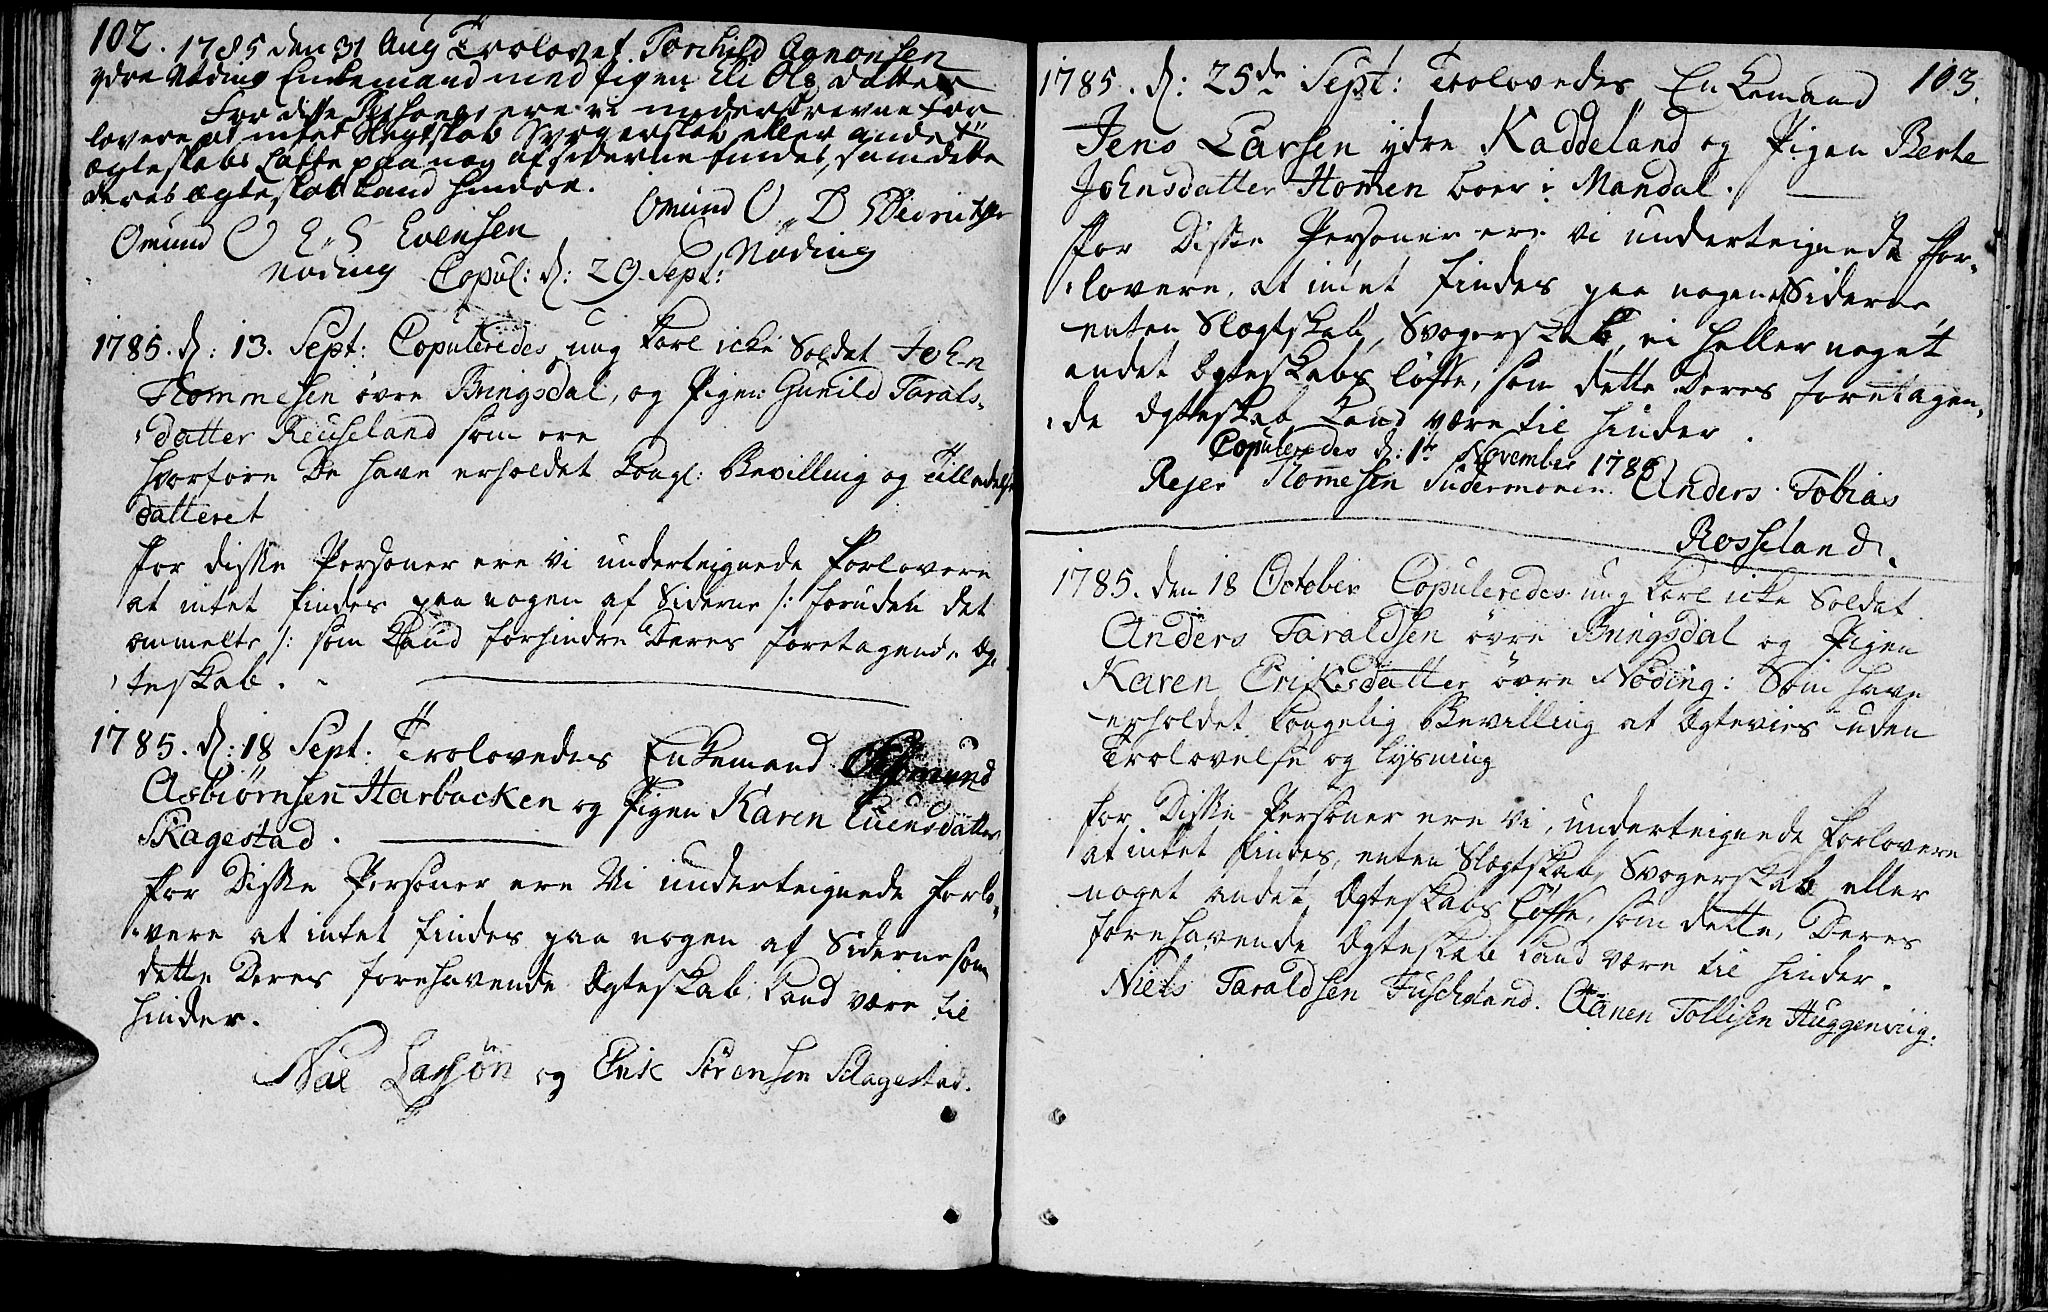 102.
1785 den 31 Aug Trolovet Torchild Aanonsen
ydre Nøding Enkemand med Pigen Eli Ols datter
For disse Personer ere vi underskrevne for
lovere at intet Slegtskab Svogerskab eller andet
ægteskabs Løfte paa nog af siderne findes, som dette
deres ægteskab kand hindre.
Omund O D Didrichsen
Nøding
Omund O E S Evensen
Nøding
Copul: d: 29. Sept:
1785. d: 13. Sept: Copuleredes ung Karl icke Soldat John
Thommesen øvre Bringsdal, og Pigen Gunild Tarals-
datter Reuseland som ere
hvorfore De have erholdet Kongl: Bevilling og Tilladelse
datteret
For disse Personer ere vi underteignede Forlovere
at intet findes paa nogen af Siderne /: foruden det
ommelte /: som Kand forhindre Deres foretagende Æg-
teskab.
1785. d: 18 Sept. Trolovedes Enkemand Osmund
Asbiørnsen Harbacken og Pigen Karen Euensdatter
Skagestad.
For Disse Personer ere Vi underteignede Forlo-
vere at intet findes paa nogen af Siderne som
dette Deres forehavende Ægteskab Kand være til
hinder.
Nael Larsøn og Erik Sørensen Schagestad.
103.
1785. d: 25de Sept: Trolovedes Enkemand
Jens Larsen ydre Kaddeland og Pigen Berte
Johnsdatter Homen boer i Mandal.
For Disse Personer ere vi underteignede For-
lovere, at intet findes paa nogen af Siderne,
enten Slægtskab, Svogerskab, ei heller noget
andet Ægteskabs løfte, som dette Deres foretagen-
de Ægteskab Kand være til hinder.
Copuleredes d: 1te November 1785
Rejer Thomesen Sudermoven. Anders Tobias
Rosseland.
1785. den 18 October Copuleredes ung Karl icke Soldat
Anders Taraldsen øvre Bringsdal og Pigen
Karen Eriksdatter øvre Nøding: Som have
erholdet Kongelig Bevilling at Ægtevies uden
Trolovelse og Lysning
For Disse Personer ere Vi underteignede Forlovere
at intet findes, enten Slægtskab, Svogerskab eller
noget andet Ægteskabs Løfte, som dette, Deres
forehavende Ægteskab kand være til hinder.
Niels Taraldsen Fuscheland. Aanen Tollisen Huggenviig.